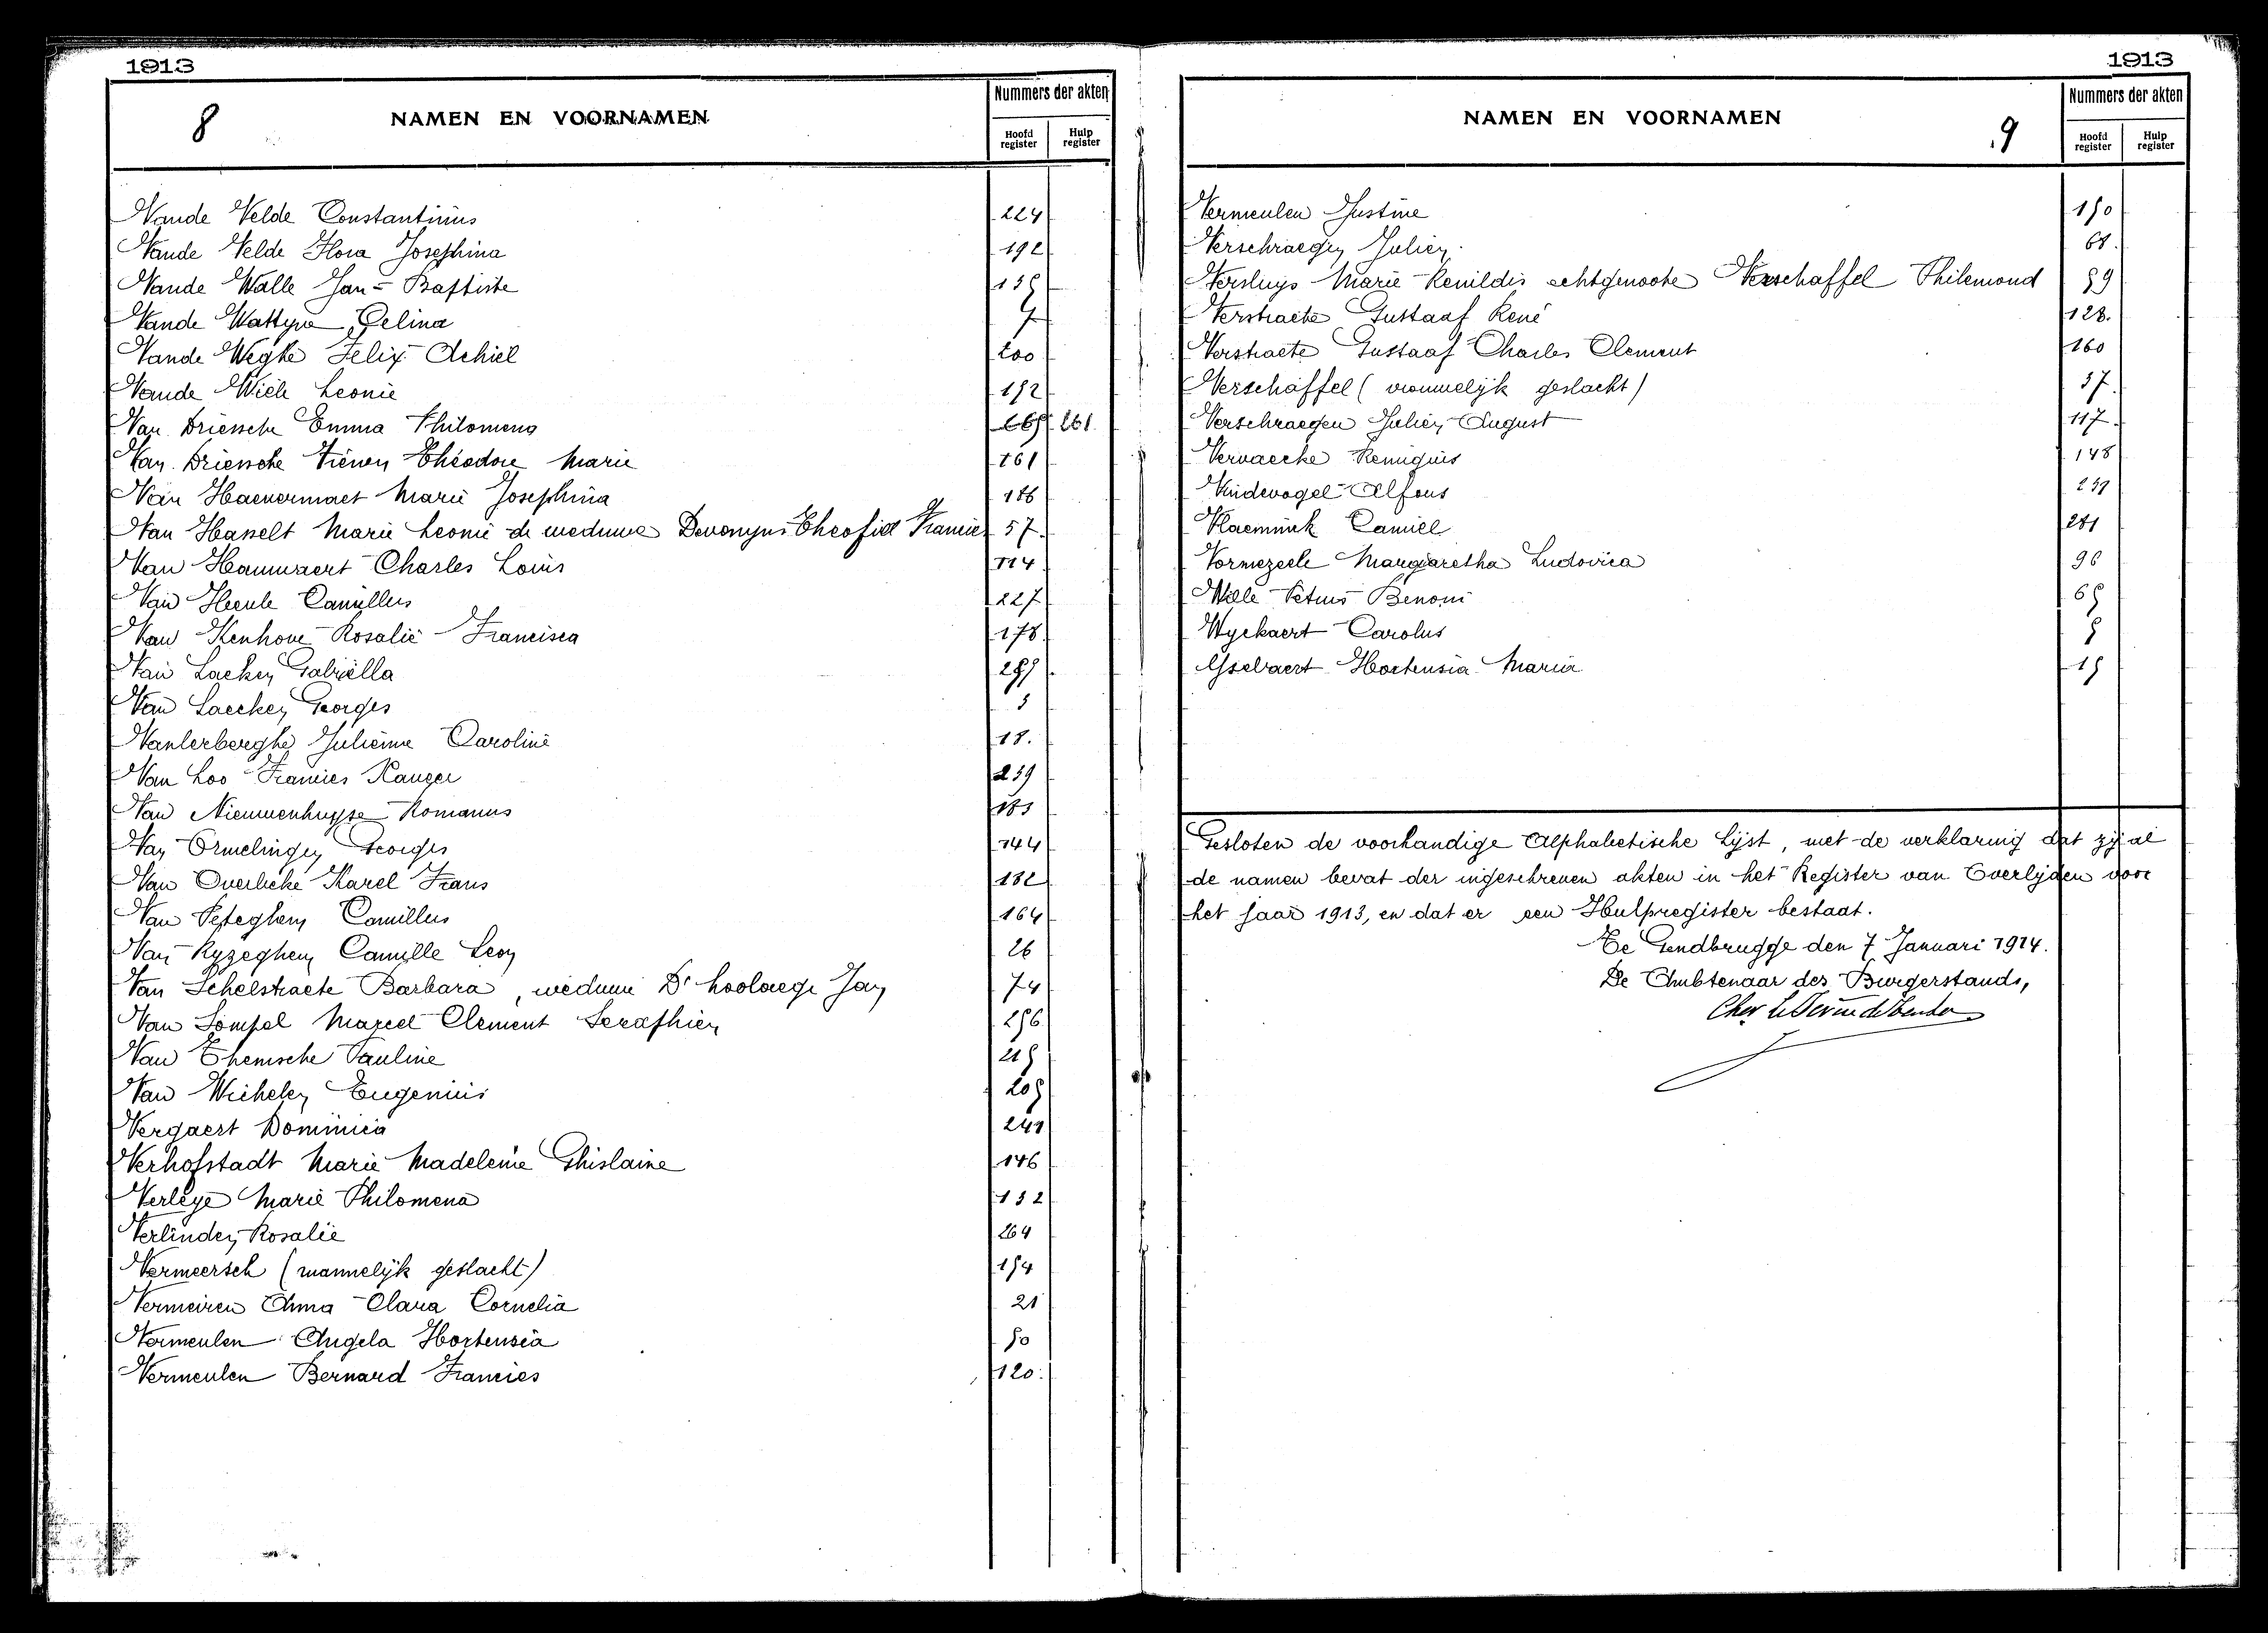 1913
8
NAMEN EN VOORNAMEN
Nummers der akten
Hoofd register
Hulp register
Vande Velde Constantinus 224
Vande Velde Flora Josephina 192
Vande Walle Jan-Baptiste 135
Vande Wattyne Celina 7
Vande Weghe Felix Achiel 200
Vande Wiele Leonie 152
Van Driessche Emma Philomena 261
Van Driessche Thérèse Théodore Marie 161
Van Haevermaet Marie Josephina 186
Van Hasselt Marie Leonie de weduwe Theofiel Francies 57
Van Hauwaert Charles Louis 114
Van Heule Camillus 227
Van Kenhove Rosalie Francisca 178
Van Laeken Gabriëlla 255
Van Laecken Georges 3
Vanlerberghe Julienne Caroline 18
Van Loo Francies Xavier 239
Van Nieuwenhuyse Romanus 183
Van Ormelingen Georges 144
Van Overbeke Karel Frans 182
Van Peteghem Camillus 164
Van Ryzeghem Camille Leon 26
Van Schelstraete Barbara, weduwe De Jan 74
Van Sompel Marcel Clement Seraphien 256
Van Themsche Pauline 215
Van Wichelen Eugenius 205
Vergaert Dominica 241
Verhofstadt Marie Madeleine Ghislaine 146
Verleye Marie Philomena 132
Verlinden Rosalie 264
Vermeersch (mannelijk geslacht) 154
Vermeiren Anna Clara Cornelia 21
Vermeulen Angela Hortensia 50
Vermeulen Bernard Francies 120
1913
NAMEN EN VOORNAMEN
9
Nummers der akten
Hoofd register
Hulp register
Vermeulen Justine 150
Verschraegen Julien 61
Versluys Marie Renildis echtgenoote Verschaffel Philemond 59
Verstraete Gustaaf René 128
Verstraete Gustaaf Charles Clement 160
Verschaffel (vrouwelijk geslacht) 37
Verschraegen Julien August 117
Vervaecke Remigius 148
Vindevogel Alfons 239
Vlaeminck Camiel 251
Vormezeele Margaretha Ludovica 96
Wille Petrus Benoni 65
Wyckaert Carolus 5
Ysebaert Hortensia Maria 15
Gesloten de voorhandige Alphabetische Lijst, met de verklaring dat zij al
de namen bevat der ingeschreven akten in het Register van Overlijden voor
het jaar 1913, en dat er een Hulpregister bestaat.
Te Gendbrugge den 7 Januari 1914.
De Ambtenaar des Burgerstands,